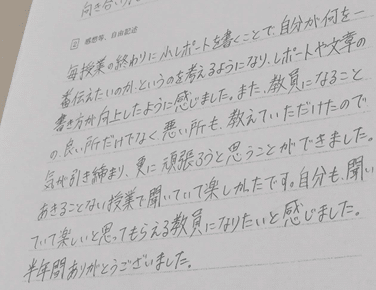 向き合い
感想等、自由記述
毎授業の終わりに小レポートを書くことで、自分が何を一
番伝えたいのか、というのを考えるようになり、レポートや文章の
書き方が向上したように感じました。また、教員になること
の、良い所だけでなく、悪い所も、教えていただけたので
気が引き締まり、更に頑張ろうと思うことができました。
あきることない授業で聞いていて楽しかったです。自分も、聞い
ていて楽しいと思ってもらえる教員になりたいと感じました。
半年間ありがとうございました。